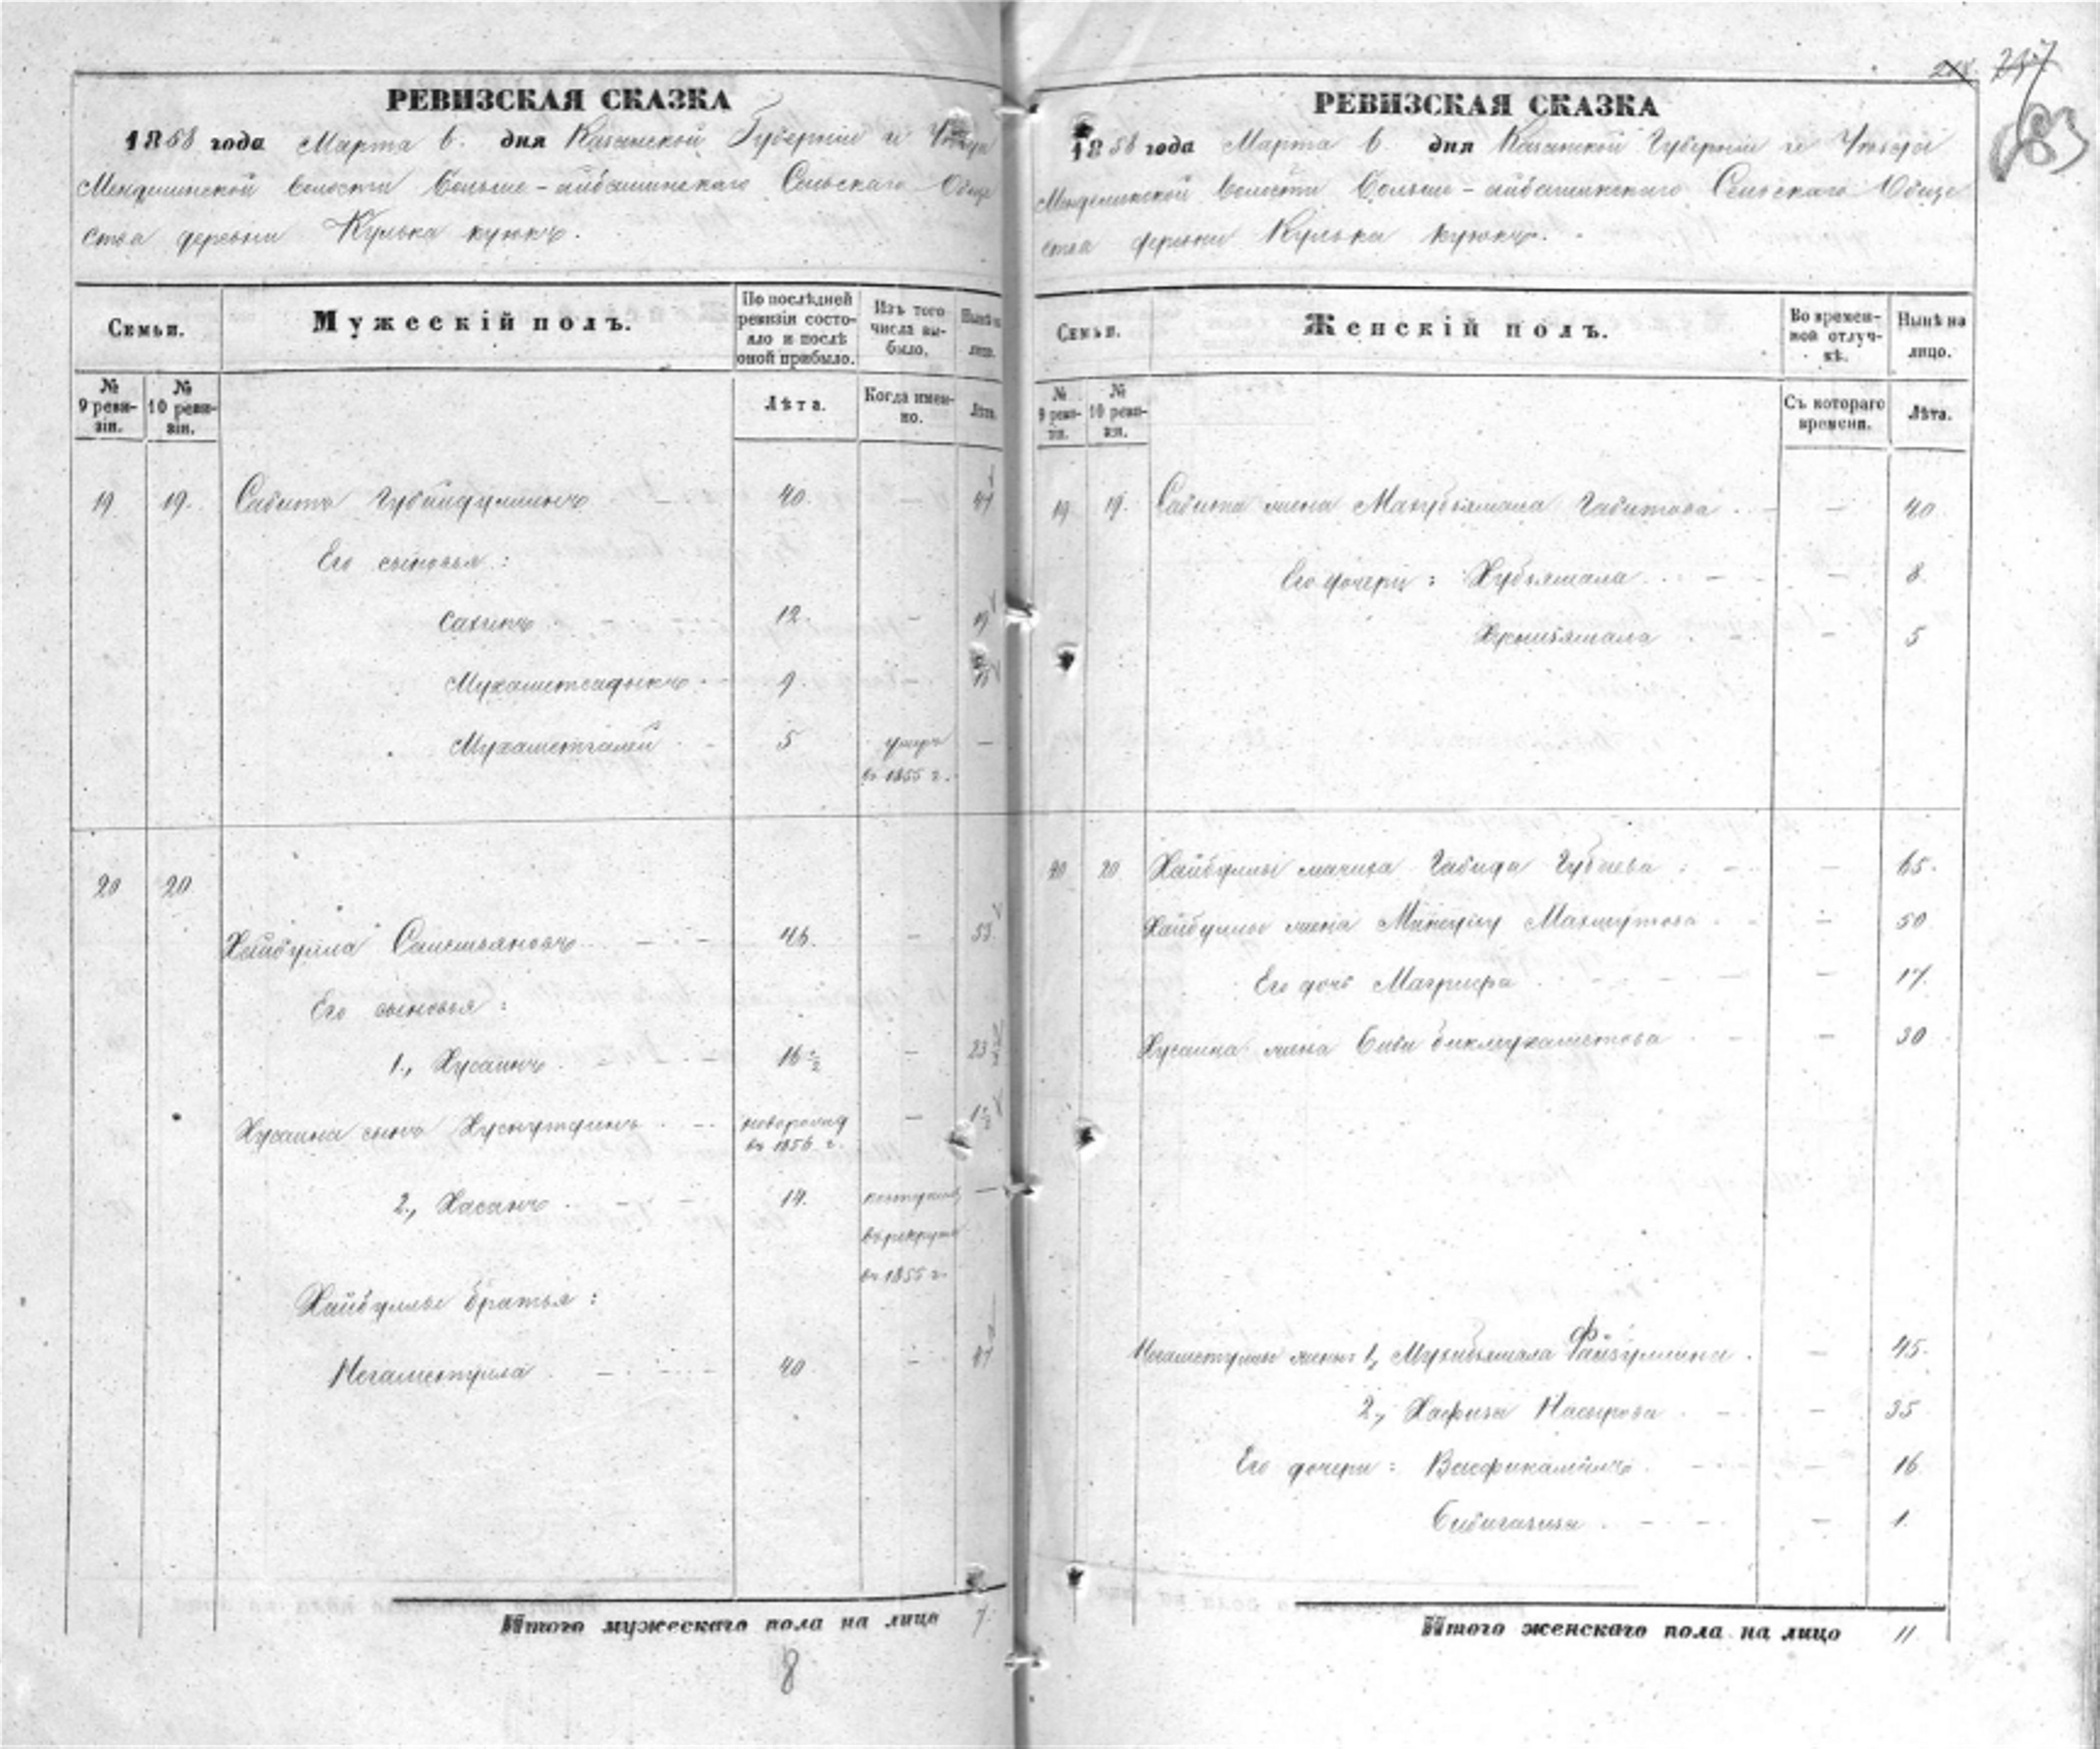 РЕВИЗСКАЯ СКАЗКА
1858 года Марта 6. дня Казанской Губернiи и Уѣзда
Менделинской волости Больше-айбашинскаго Сельскаго Обще
ства деревни Кулька куюкъ.
Семьи.
Мужескій полъ.
По послѣдней ревизіи состояло и послѣ оной прибыло.
Изъ того числа выбыло.
Нынѣ на лицо.
№ 9 ревизіи.
№ 10 ревизіи.
Лѣта.
Когда именно.
Лѣта.
19 19. Сабитъ Губайдуллинъ 40. — 47
Его сыновья:
Сахипъ 12. — 19
Мухаметсадыкъ 9. — 16
Мухаметгалей 5 умеръ —
въ 1855 г.
20 20
Хайбулла 46. — 53
Его сыновья:
1., Хусаинъ 16 1/2 — 23 1/2
Хусаина сынъ Хуснутдинъ новорожд — 1 1/2
въ 1856 г.
2., Хасанъ 14. поступилъ —
въ рекруты
въ 1855 г.
Хайбуллы братья:
Негаметулла 40. — 47
Итого мужескаго пола на лицо 7.
8
218. 217
183
РЕВИЗСКАЯ СКАЗКА
1858 года Марта 6 дня Казанской Губернiи и Уѣзда
Менделинской волости Больше-айбашинскаго Сельскаго Обще
ства деревни Кулька куюкъ.
Семьи.
Женскій полъ.
Во временной отлучкѣ.
Нынѣ на лицо.
№ 9 ревизіи.
№ 10 ревизіи.
Съ котораго времени.
Лѣта.
19 19. Сабита жена Махубзямала Габитова — 40
Его дочери: Хубзямала — 8
— 5
20 20 Хайбуллы мачиха Габида Губаева — 65.
Хайбуллы жена Махмутова — 50
Его дочь Магрифа — 17
Хусаина жена Биби Бикмухаметова — 30
Негаметуллы жены: 1, Мухибзямала Файзуллина — 45.
2., Хафиза Насырова — 35
Его дочери: Васфикамалъ — 16
Бибигазиза — 1.
Итого женскаго пола на лицо 11